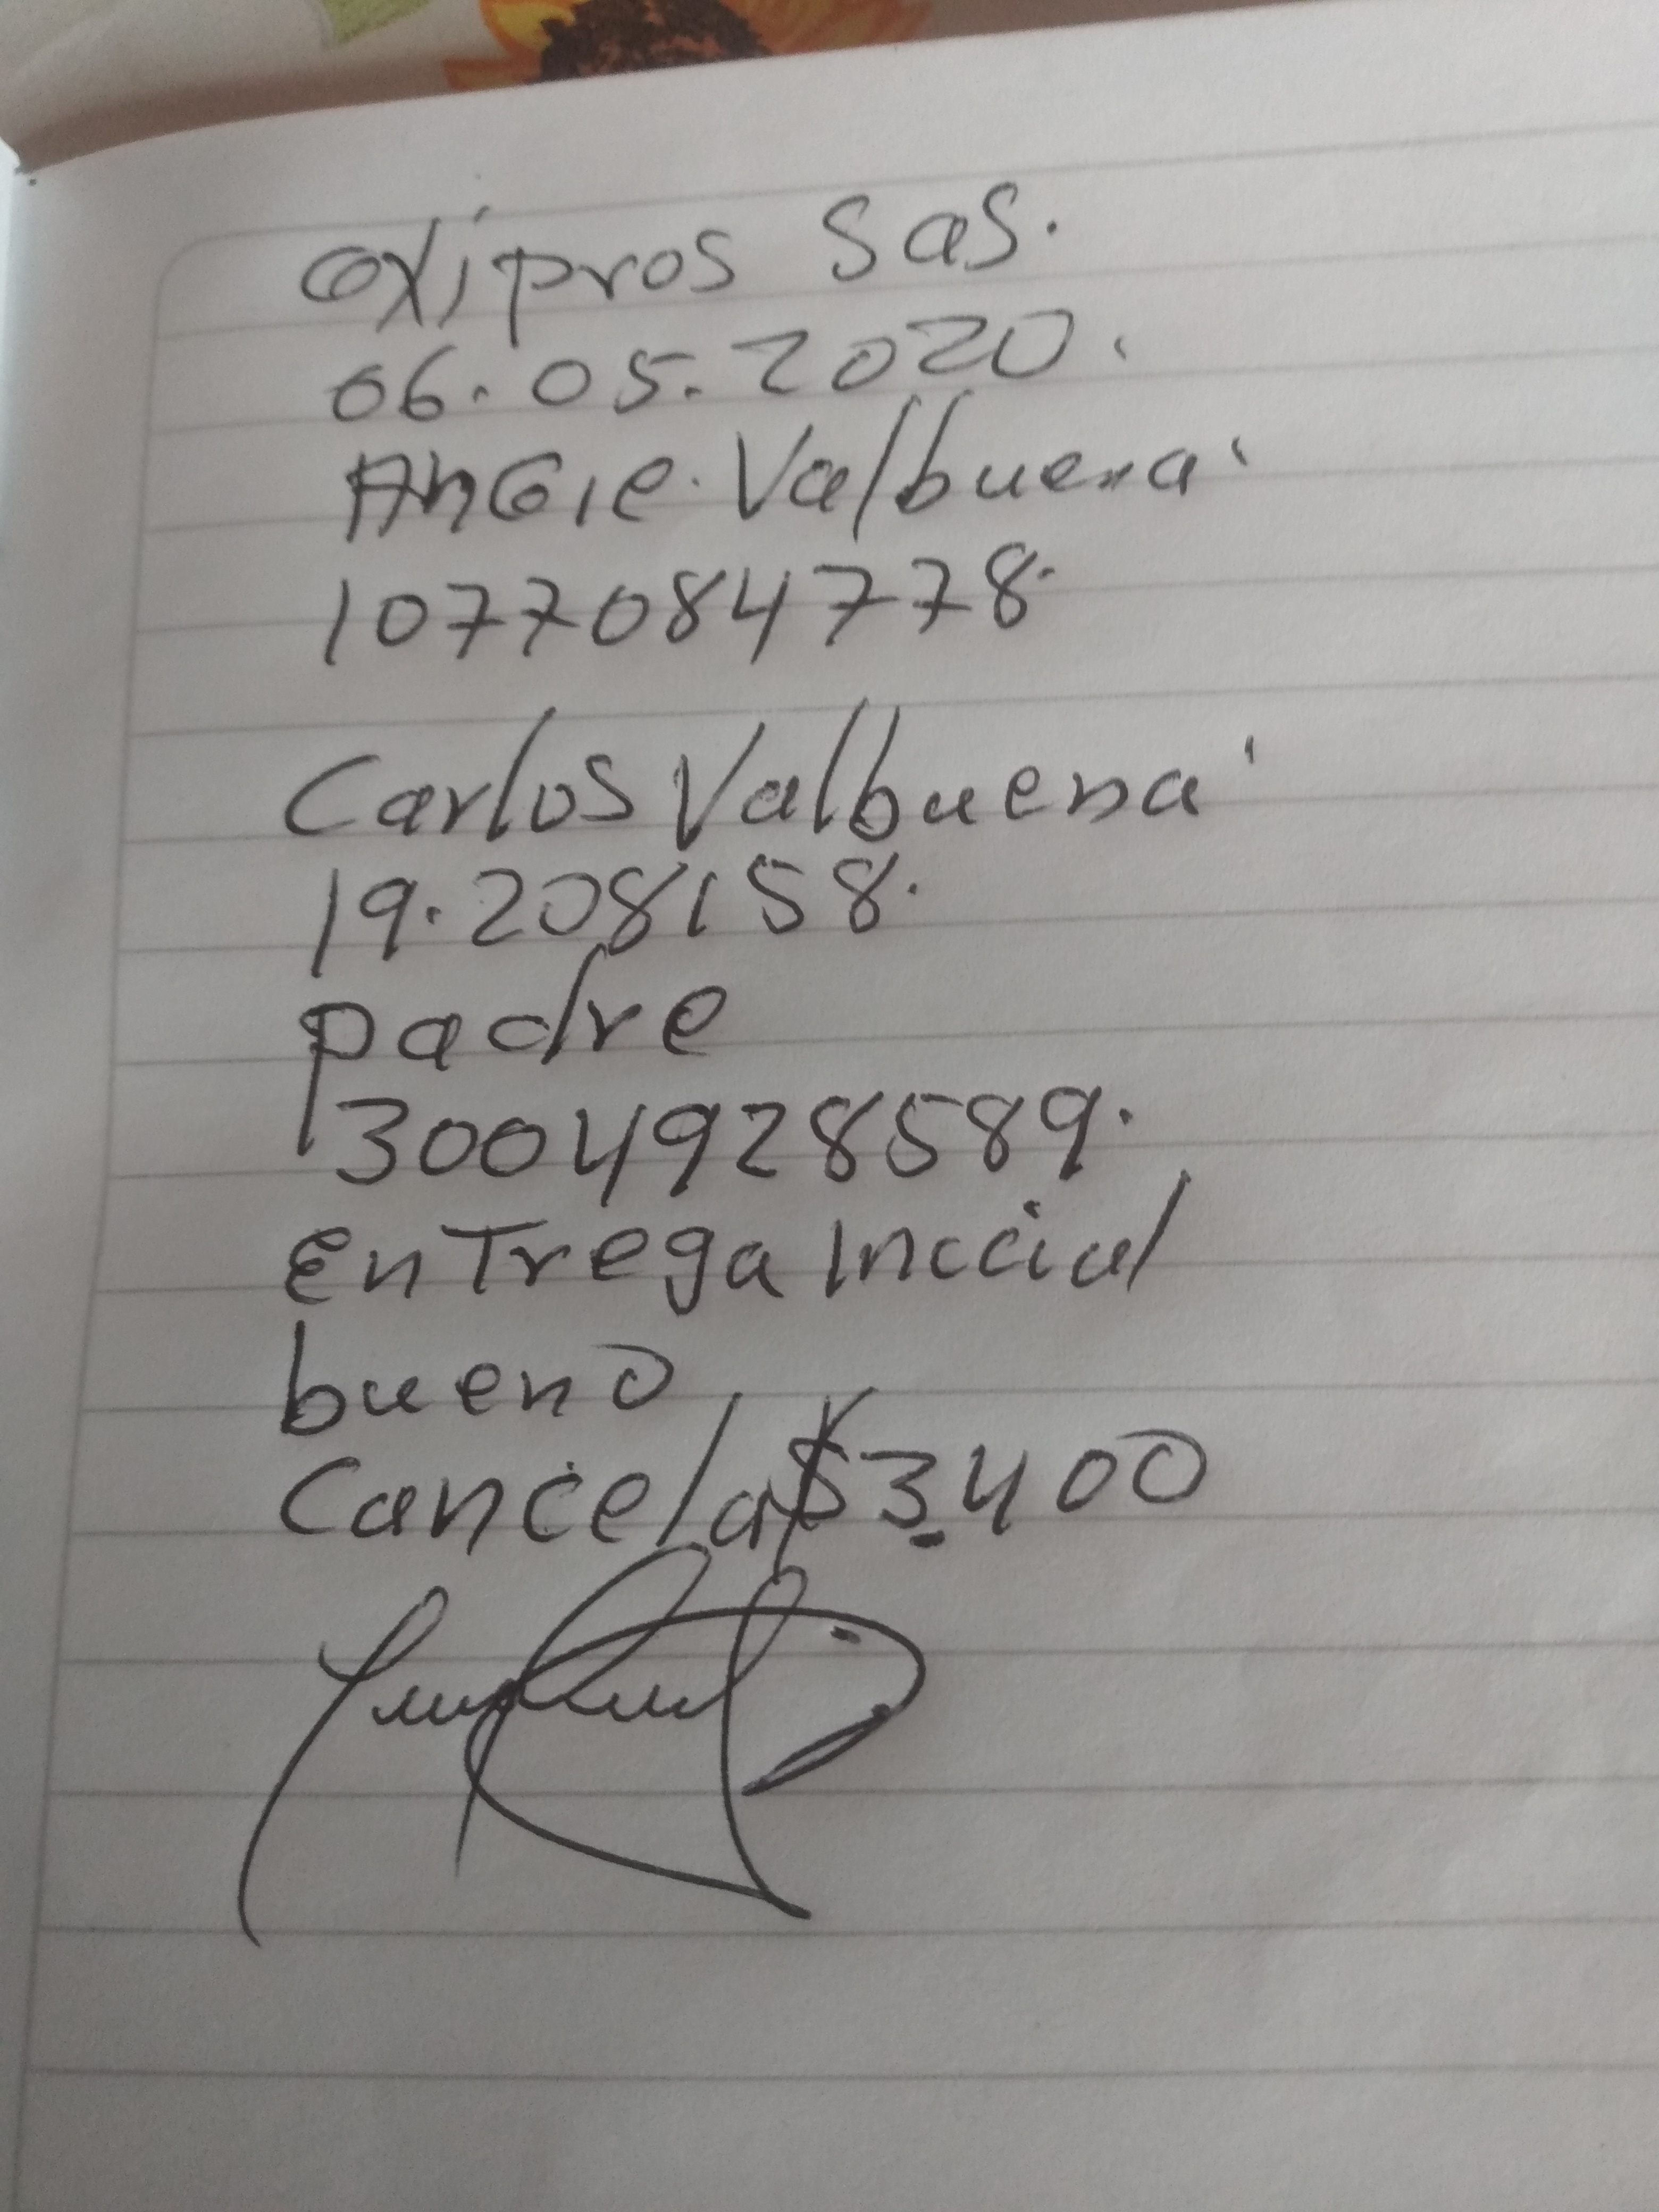 Oxipros SaS.
06.05.2020.
AnGie Valbuena
1077084778.
Carlos Valbuena
19.208158.
padre
3004928589.
EnTrega Inicial
bueno
Cancela $3.400